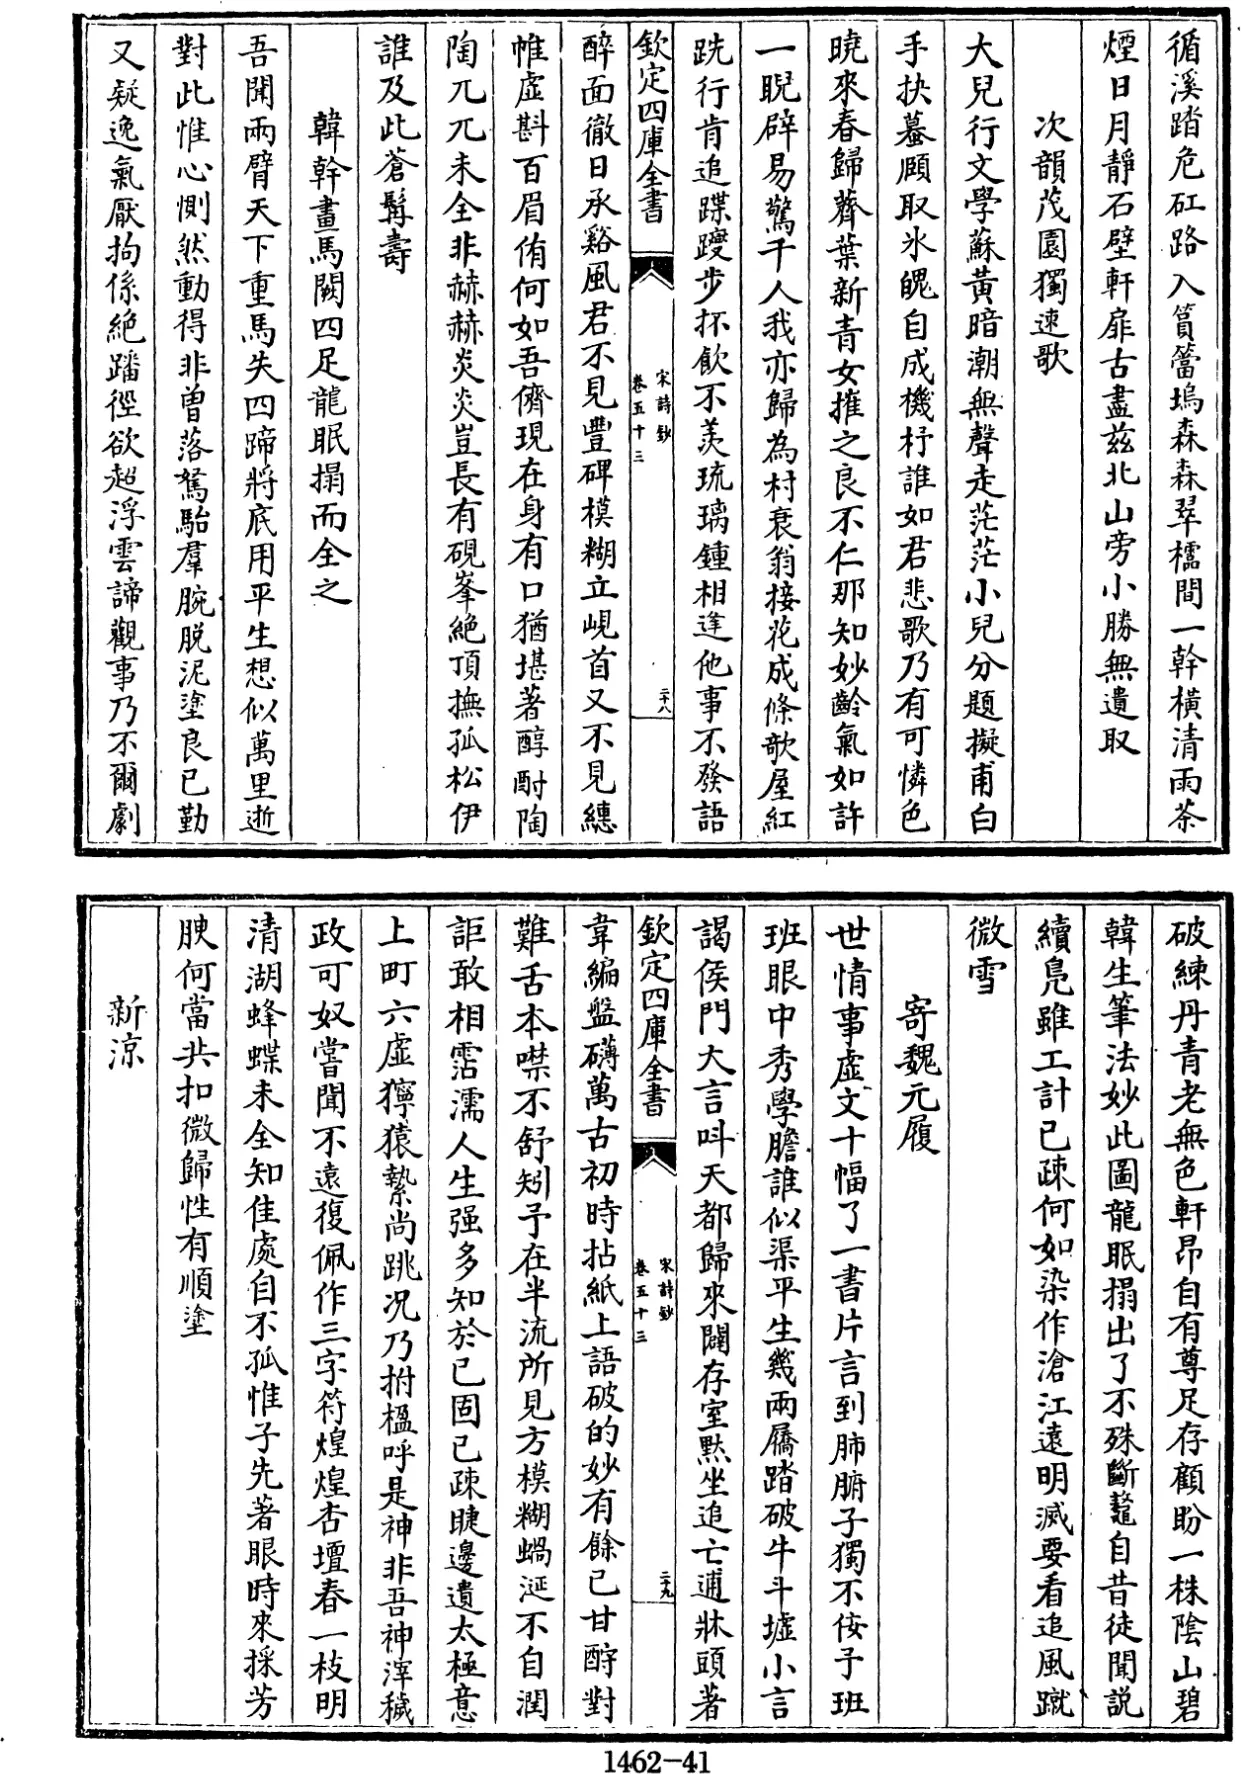 循溪踏危矼路入篔簹塢森森翠檽間一幹橫清雨茶
煙日月靜石壁軒扉古盡茲北山旁小勝無遺取
次韻茂園獨速歌
大兒行文學蘇黃暗潮無聲走茫茫小兒分題擬甫白
手抉蟇頤取氷魄自成機杼誰如君悲歌乃有可憐色
曉來春歸薺葉新青女摧之良不仁那知妙齡氣如許
一睨辟易驚千人我亦歸為村衰翁接花成條歌屋紅
跣行肯追蹀躞步抔飲不羡琉璃鍾相逢他事不發語
欽定四庫全書
宋詩鈔
卷五十三
二十八
醉面徹日承谿風君不見豐碑模糊立峴首又不見繐
帷虛斟百眉侑何如吾儕現在身有口猶堪著醇酎陶
陶兀兀未全非赫赫炎炎豈長有硯峯絶頂撫孤松伊
誰及此蒼髯壽
韓幹畫馬闕四足龍眠搨而全之
吾聞兩臂天下重馬失四蹄將底用平生想似萬里逝
對此惟心惻然動得非曾落駑駘羣腕脫泥塗良已勤
又疑逸氣厭拘係絶踏徑欲超浮雲諦觀事乃不爾劇
破練丹青老無色軒昂自有尊足存顧盼一株陰山碧
韓生筆法妙此圖龍眠搨出了不殊斷鼇自昔徒聞說
續鳬雖工計已疎何如染作滄江遠明滅要看追風蹴
微雪
寄魏元履
世情事虛文十幅了一書片言到肺腑子獨不佞予班
班眼中秀學膽誰似渠平生幾兩屩踏破牛斗墟小言
謁侯門大言呌天都歸來闢存室黙坐追亡逋牀頭著
欽定四庫全書
宋詩鈔
卷五十三
二十九
韋編盤礴萬古初時拈紙上語破的妙有餘已甘酧對
難舌本噤不舒矧予在半流所見方模糊蝸涎不自潤
詎敢相霑濡人生强多知於己固已疎睫邊遺太極意
上町六虛獰猿縶尚跳况乃拊楹呼是神非吾神滓穢
政可奴嘗聞不遠復佩作三字符煌煌杏壇春一枝明
清湖蜂蝶未全知佳處自不孤惟子先著眼時來採芳
腴何當共扣微歸性有順塗
新涼
1462-41